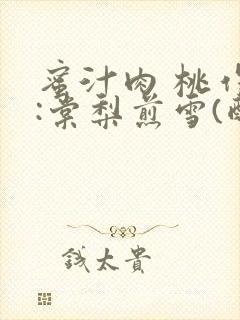 蜜汁肉桃
:棠梨煎雪(
錢太貴